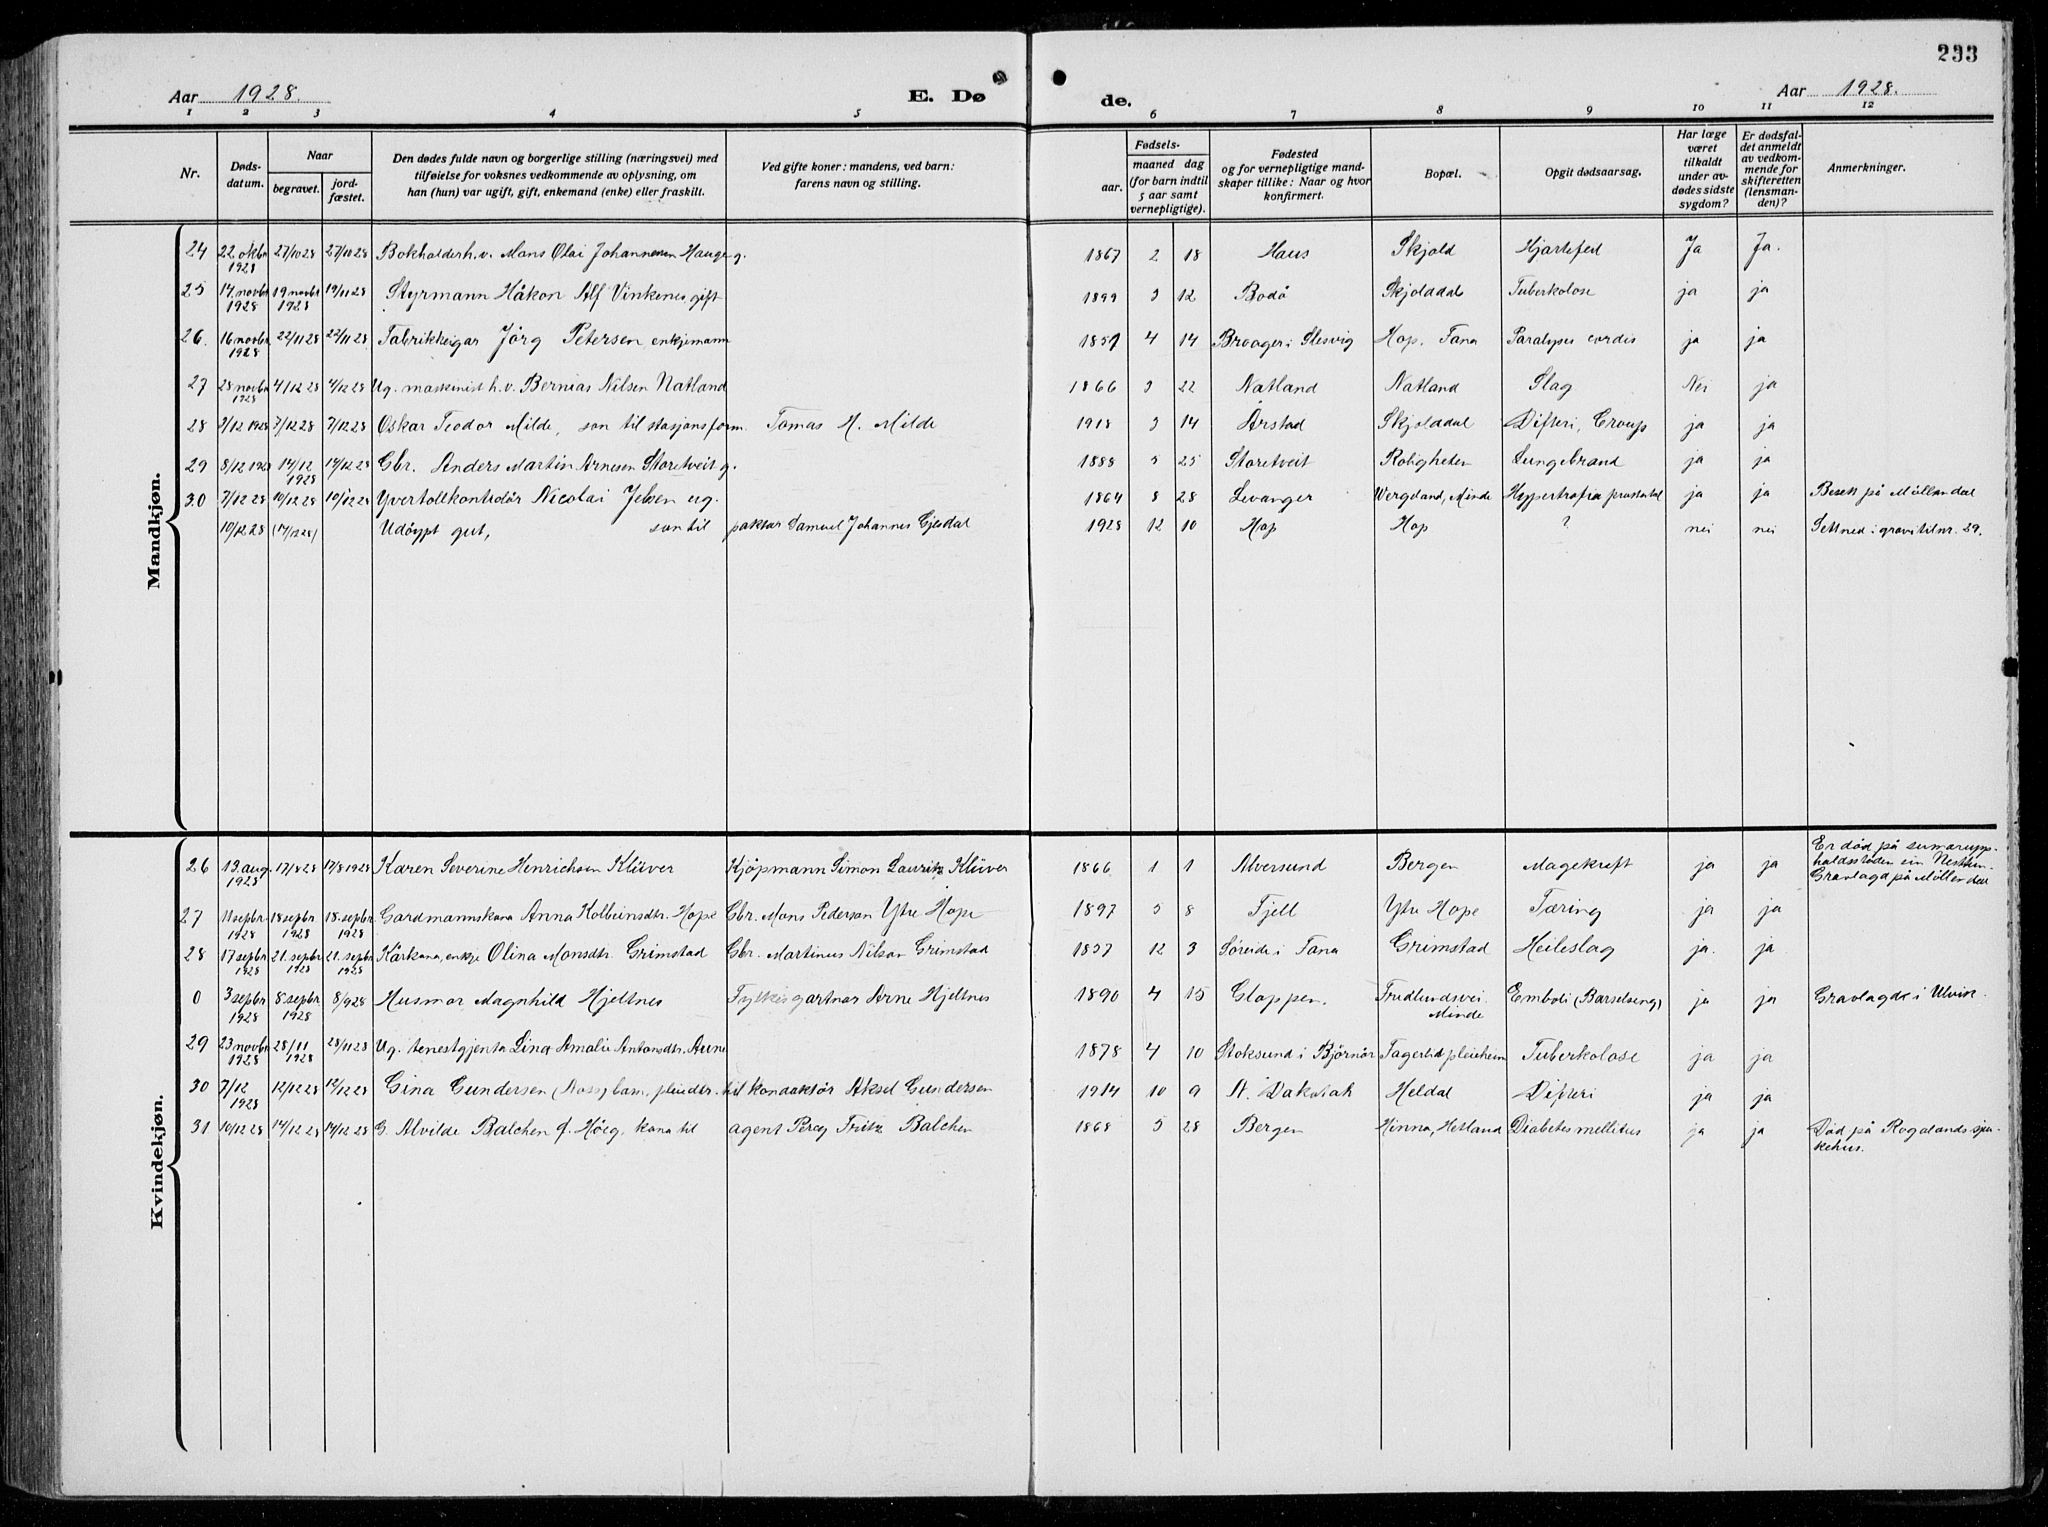 233
Aar 1928. E. Dø de. Aar 1928.
1 2 3 4 5 6 7 8 9 10 11 12
Nr. Døds-datum. Naar begravet. jord-fæstet. Den dødes fulde navn og borgerlige stilling (næringsvei) med tilføielse for voksnes vedkommende av oplysning, om han (hun) var ugift, gift, enkemand (enke) eller fraskilt. Ved gifte koner: mandens, ved barn: farens navn og stilling. Fødsels- aar. maaned dag (for barn indtil 5 aar samt vernepligtige). Fødested og for vernepligtige mand-skaper tillike: Naar og hvor konfirmert. Bopæl. Opgit dødsaarsag. Har læge været tilkaldt under av-dødes sidste sygdom? Er dødsfal-det anmeldt av vedkom-mende for skifteretten (lensman-den)? Anmerkninger.
Mandkjøn.
24 22. oktbr 1928 27/10 28 27/10 28 Bokholder h.v. Mons Olai Johannesen Hauge g. 1867 2 18 Haus Skjold Hjartefeil Ja Ja.
25 14. novbr 1928 19 novbr 1928 19/11 28 Styrmann Håkon Alf Vinkenes gift 1899 3 12 Bodö Skjolddal Tuberkolose ja ja
26. 16 novbr 1928 22/11 28 22/11 28 Fabrikkeigar Jörg Petersen enkjemann 1851 4 14 Broager i Slesvig Hop, Fana Paralyses cordis ja ja
27 28 novbr 1928 4/12 28 4/12 28 Ug. maskinist h.v. Bernias Nilsen Natland 1866 3 22 Natland Natland Slag Nei ja
28 3/12 1928 7/12 28 7/12 28 Oskar Teodor Milde, son til stasjonsform. Tomas H. Milde 1918 3 14 Årstad Skjolddal Difteri, Croup ja ja
29 8/12 1928 14/12 1928 14/12 28 Gbr. Anders Martin Arnesen Storetveit g. 1888 5 25 Storetveit Roligheten Lungebrand ja ja
30 7/12 28 10/12 28 10/12 28 Yvertollkontrolör Nicolai Jelsen ug. 1864 8 28 Levanger Wergeland, Minde Hypertrofia prostatal ja ja Besett på Möllendal
10/12 28 (14/12 28) Udöypt gut, son til paktar Samuel Johannes Gjesdal 1928 12 10 Hop Hop ? nei nei Settned i grav til nr. 29.
Kvindekjøn.
26 13. aug 1928 17/8 28 17/8 1928 Karen Severine Henrichsen Klüver Kjöpmann Simon Lauritz Klüver 1866 1 1 Alversund Bergen Magekreft ja ja Er död på sumarupp-haldsstaden sin Nesttun. Gravlagd på Möllendal
27 11 sepbr. 1928 18 sepbr 1928 18. sepbr 1928 Gardmannskona Anna Kolbeinsdtr. Hope Gbr. Mons Pederson Ytre Hope 1897 5 8 Fjell Ytre Hope Tæring ja ja
28 17 sepbr 1928 21. sepbr 1928 21. sepbr 1928 Kårkona, enkje Olina Monsdtr. Grimstad Gbr. Martinus Nilson Grimstad 1837 12 3 Søreide i Fana Grimstad Heileslag ja. ja
0 3 sepbr. 1928 8. sepbr 1928 8/9 28 Husmor Magnhild Hjeltnes Fylkisgartnar Arne Hjeltnes 1890 4 15 Gloppen. Fridlundsvei Minde Emboli (Barselseng) ja ja Gravlagde i Ulvik.
29 23 novbr 1928 28/11 1928 28/11 28 Ug. tenestgjenta Lina Amalie Antonsdtr. Aune 1878 4 10 Stoksund i Björnör Fagerlid pleieheim Tuberkolose ja ja
30 7/12 1928 12/12 28 12/12 28 Gina Gundersen pleiedtr. til konduktör Aksel Gundersen 1914 10 9 N. Dakotah Heldal Difteri ja ja
31 10/12 28 14/12 28 14/12 28 G. Alvilde Balchen f. Höeg, kona til agent Percy Fritz Balchen 1868 5 28 Bergen Hinna, Hetland Diabetes mellitus ja ja Död på Rogalands sju-kehus.